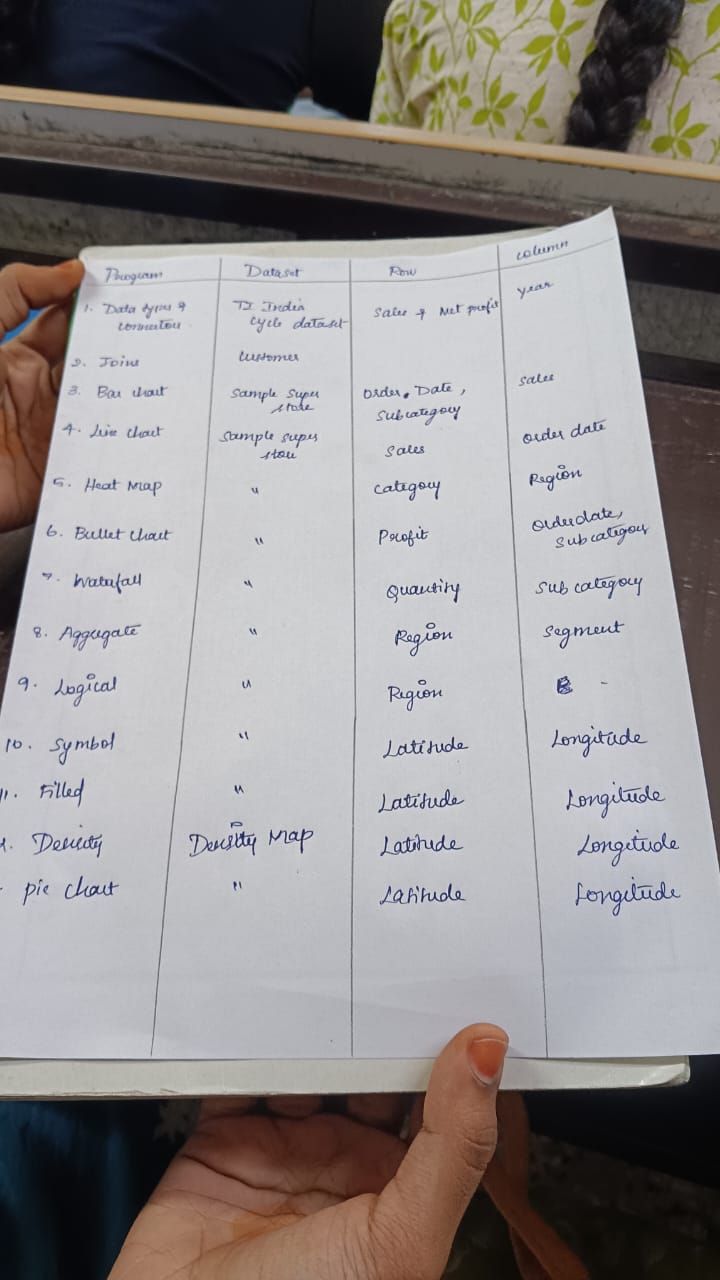 Program Dataset Row column
1. Data types & TI India Sales & Net profit year
cycle dataset
2. Joins customer
3. Bar chart Sample Super Order, Date, sales
store Subcategory
4. Line chart Sample super Sales order date
store
5. Heat Map " Category Region
6. Bullet chart " Profit Order date,
Sub category
7. Waterfall " Quantity Sub category
8. Aggregate " Region Segment
9. Logical " Region -
10. Symbol " Latitude Longitude
11. Filled " Latitude Longitude
Density Density Map Latitude Longitude
pie chart " Latitude Longitude